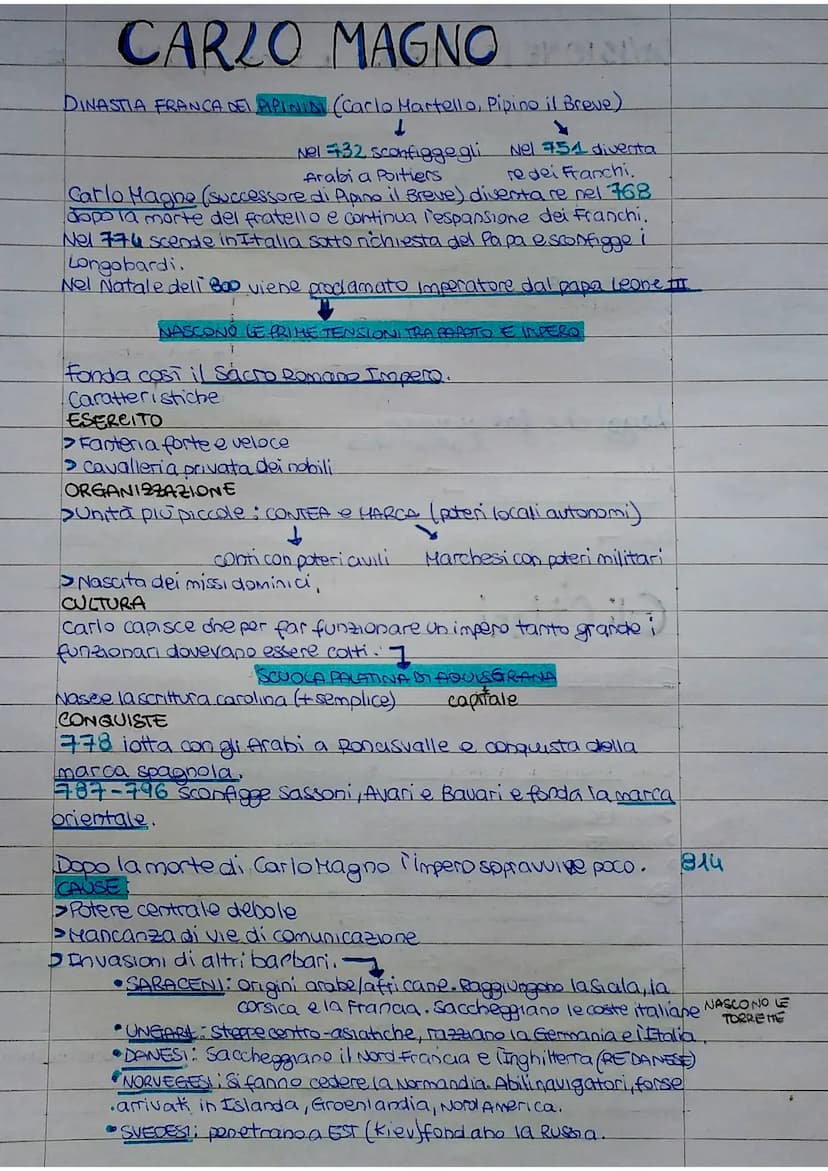 CARLO MAGNO
DINASTIA FRANCA DEI PIPINIDI (Carlo Martello, Pipino il Breve)
Nel 732 sconfigge gli Nel 751 diventa
Arabi a Poitiers re dei Franchi.
Carlo Magno (successore di Pipino il Breve) diventa re nel 768
dopo la morte del fratello e continua l'espansione dei Franchi.
Nel 774 scende in Italia sotto richiesta del Papa e sconfigge i
Longobardi.
Nel Natale dell'800 viene proclamato imperatore dal papa Leone III
NASCONO LE PRIME TENSIONI TRA PAPATO E IMPERO
Fonda così il Sacro Romano Impero.
Caratteristiche
ESERCITO
> Fanteria forte e veloce
> cavalleria privata dei nobili
ORGANIZZAZIONE
> Unità più piccole: CONTEA e MARCA (poteri locali autonomi)
conti con poteri civili Marchesi con poteri militari
> Nascita dei missi dominici.
CULTURA
Carlo capisce che per far funzionare un impero tanto grande i
funzionari dovevano essere colti.
SCUOLA PALATINA DI AQUISGRANA
Nasce la scrittura carolina (+ semplice) capitale
CONQUISTE
778 lotta con gli Arabi a Roncisvalle e conquista della
marca spagnola.
787-796 sconfigge Sassoni, Avari e Bavari e fonda la marca
orientale.
Dopo la morte di Carlo Magno l'impero sopravvive poco. 814
CAUSE:
> Potere centrale debole
> Mancanza di vie di comunicazione
> Invasioni di altri barbari.
• SARACENI: origini arabe/africane. Raggiungono la Sicilia, la
corsica e la Francia. Saccheggiano le coste italiane NASCONO LE
TORRETTE
• UNGARI: steppe centro-asiatiche, razziano la Germania e l'Italia.
• DANESI: Saccheggiano il Nord Francia e l'Inghilterra (RE DANESE)
• NORVEGESI: Si fanno cedere la Normandia. Abili navigatori, forse
arrivati in Islanda, Groenlandia, Nord America.
• SVEDESI: penetrano a EST (Kiev) fondano la Russia.